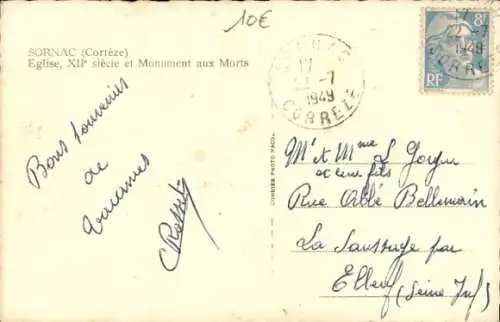 10€
SORNAC (Corrèze)
Eglise, XIIᵉ siècle et Monument aux Morts
SORNAC
17
22-7
1949
CORREZE
8F
RF
17
22-7
1949
CORRE
Bons souvenirs
de
vacances
COMBIER PHOTO MACON
Mʳ & Mᵐᵉ L
et leur fils
Rue Abbé Bellemain
La Saussaye par
Elbeuf (Seine Inf)